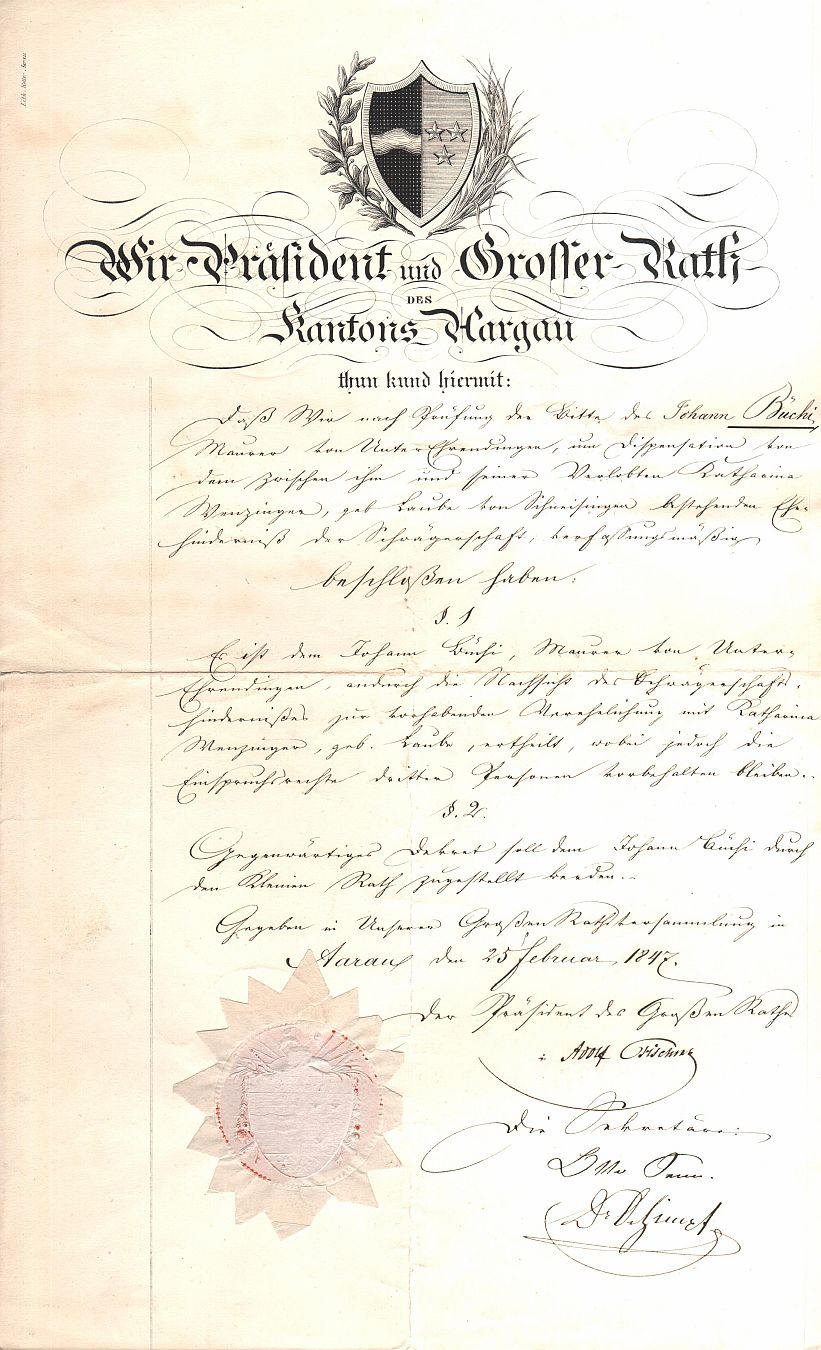 Wir Präsident und Grosser Rath
DES
Kantons Aargau
thun kund hiermit:
Daß Wir nach Prüfung der Bitte des Johann Büchi,
Maurer von Unter Ehrendingen, um Dispensation von
dem zwischen ihm und seiner Verlobten Katharina
Wenzinger, geb Laube von Schneisingen bestehenden Ehe-
hinderniß der Schwägerschaft, verfassungsmäßig
beschloßen haben:
§. 1
Es ist dem Johann Büchi, Maurer von Unter-
Ehrendingen, andurch die Nachsicht des Schwägerschafts-
hindernißes zur vorhabenden Verehelichung mit Katharina
Wenzinger, geb. Laube, ertheilt, wobei jedoch die
Einspruchsrechte dritter Personen vorbehalten bleiben.
§. 2.
Gegenwärtiges Dekret soll dem Johann Büchi durch
den Kleinen Rath zugestellt werden.
Gegeben in Unserer Großen Rathsversammlung in
Aarau den 25 Februar 1847.
Der Präsident des Großen Rathes
Adolf
Die Sekretäre: